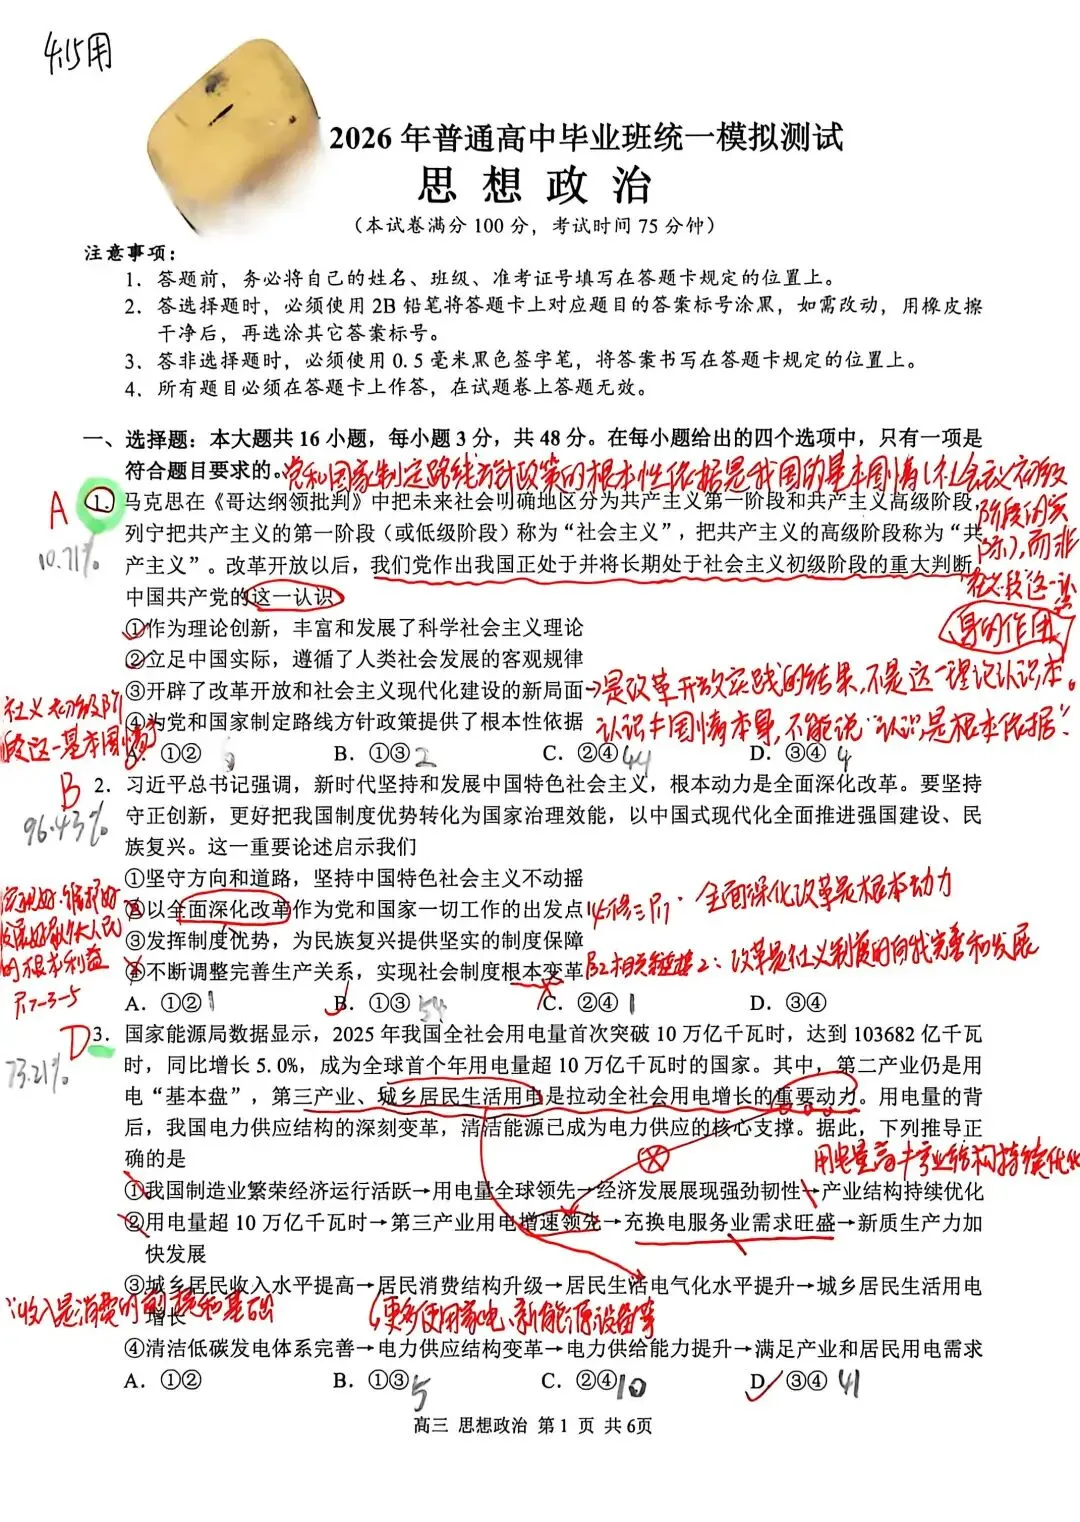 4.15用
2026 年普通高中毕业班统一模拟测试
思 想 政 治
（本试卷满分 100 分，考试时间 75 分钟）
注意事项：
1．答题前，务必将自己的姓名、班级、准考证号填写在答题卡规定的位置上。
2．答选择题时，必须使用 2B 铅笔将答题卡上对应题目的答案标号涂黑，如需改动，用橡皮擦
干净后，再选涂其它答案标号。
3．答非选择题时，必须使用 0.5 毫米黑色签字笔，将答案书写在答题卡规定的位置上。
4．所有题目必须在答题卡上作答，在试题卷上答题无效。
一、选择题：本大题共 16 小题，每小题 3 分，共 48 分。在每小题给出的四个选项中，只有一项是
符合题目要求的。
党和国家制定路线方针政策的根本性依据是我国的基本国情（社会主义初级
阶段的实
际），而非
这一认
识的作用
A
10.71%
1．马克思在《哥达纲领批判》中把未来社会明确地区分为共产主义第一阶段和共产主义高级阶段，
列宁把共产主义的第一阶段（或低级阶段）称为“社会主义”，把共产主义的高级阶段称为“共
产主义”。改革开放以后，我们党作出我国正处于并将长期处于社会主义初级阶段的重大判断。
中国共产党的这一认识
①作为理论创新，丰富和发展了科学社会主义理论
②立足中国实际，遵循了人类社会发展的客观规律
③开辟了改革开放和社会主义现代化建设的新局面
→是改革开放实践的结果，不是这一理论认识本身。
④为党和国家制定路线方针政策提供了根本性依据
认识≠国情本身，不能说“认识”是根本依据。
社义初级阶
段这一基本国情
A．①② 6
B．①③ 2
C．②④ 44
D．③④ 4
B
96.43%
2．习近平总书记强调，新时代坚持和发展中国特色社会主义，根本动力是全面深化改革。要坚持
守正创新，更好把我国制度优势转化为国家治理效能，以中国式现代化全面推进强国建设、民
族复兴。这一重要论述启示我们
①坚守方向和道路，坚持中国特色社会主义不动摇
②以全面深化改革作为党和国家一切工作的出发点
必修三 P1：全面深化改革是根本动力
③发挥制度优势，为民族复兴提供坚实的制度保障
④不断调整完善生产关系，实现社会制度根本变革
B2相关链接2：改革是社义制度的自我完善和发展
实现好、维护好
发展好最广大人民
的根本利益
A．①② 1
B．①③ 54
C．②④ 1
D．③④
D
73.21%
3．国家能源局数据显示，2025 年我国全社会用电量首次突破 10 万亿千瓦时，达到 103682 亿千瓦
时，同比增长 5.0%，成为全球首个年用电量超 10 万亿千瓦时的国家。其中，第二产业仍是用
电“基本盘”，第三产业、城乡居民生活用电是拉动全社会用电增长的重要动力。用电量的背
后，我国电力供应结构的深刻变革，清洁能源已成为电力供应的核心支撑。据此，下列推导正
确的是
用电量高≠产业结构持续优化
①我国制造业繁荣经济运行活跃→用电量全球领先→经济发展展现强劲韧性→产业结构持续优化
②用电量超 10 万亿千瓦时→第三产业用电增速领先→充换电服务业需求旺盛→新质生产力加
快发展
③城乡居民收入水平提高→居民消费结构升级→居民生活电气化水平提升→城乡居民生活用电
增长
∵收入是消费的前提和基础
（更多使用家电、新能源设备等
④清洁低碳发电体系完善→电力供应结构变革→电力供给能力提升→满足产业和居民用电需求
A．①②
B．①③ 5
C．②④ 10
D．③④ 41
高三 思想政治 第 1 页 共 6页